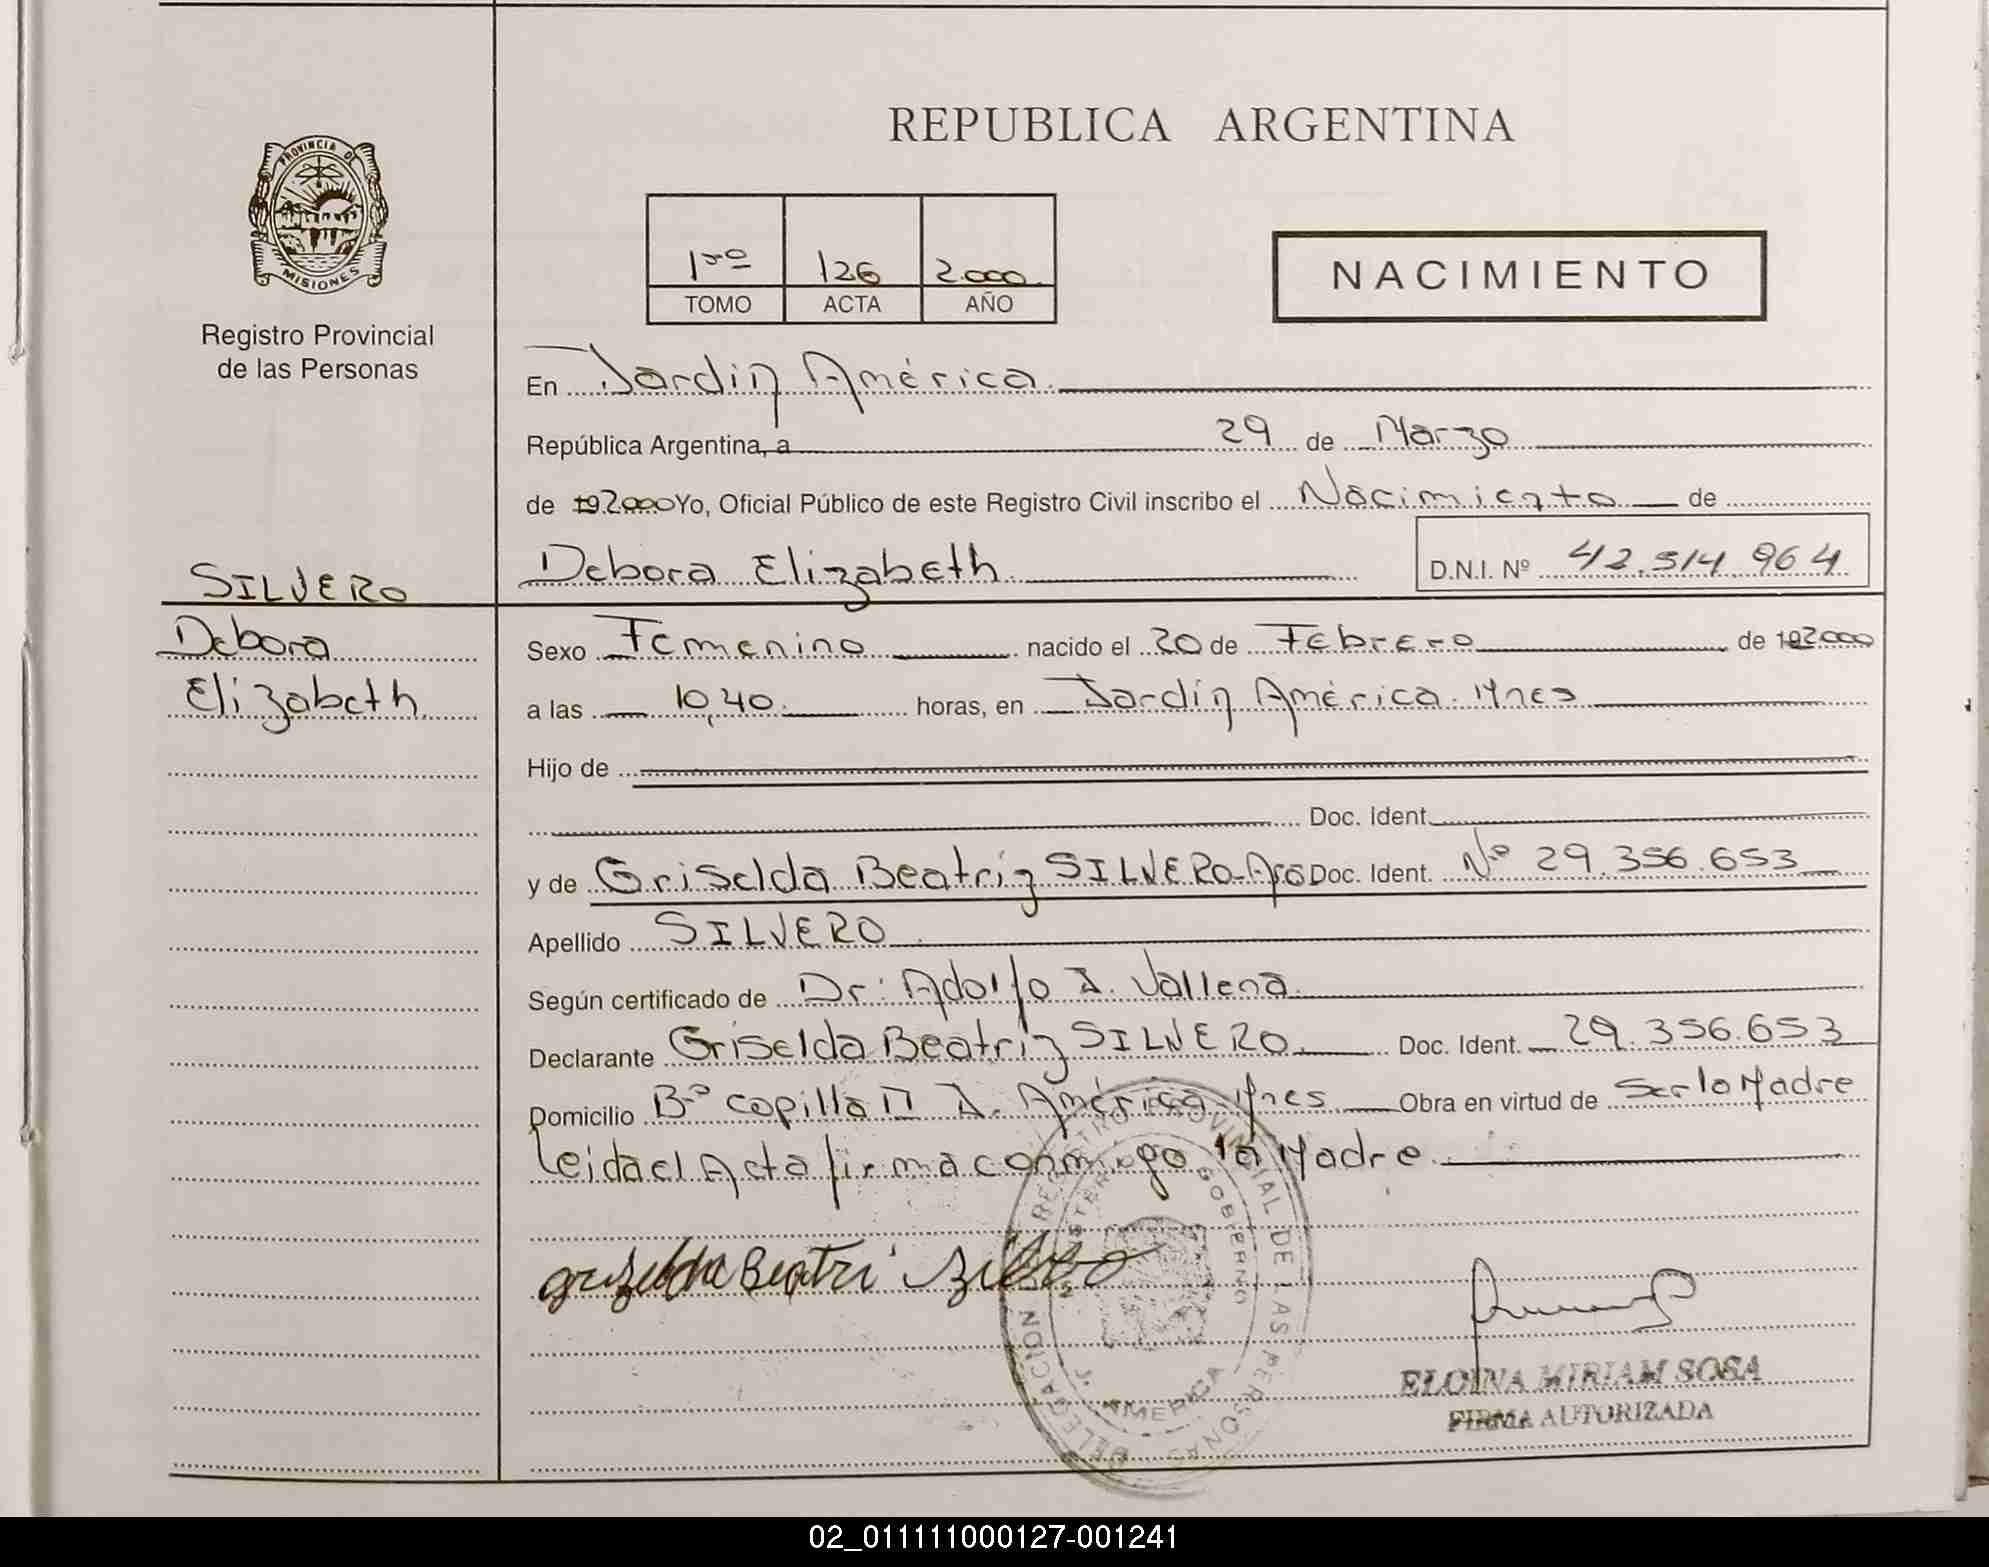 REPUBLICA ARGENTINA
PROVINCIA DE
MISIONES
Registro Provincial
de las Personas
1ro 126 2.000
TOMO ACTA AÑO
NACIMIENTO
En Jardin América
República Argentina, a 29 de Marzo
de 192.000 Yo, Oficial Público de este Registro Civil inscribo el Nacimiento de
SILVERO
Debora Elizabeth D.N.I. Nº 42.514.964
Debora
Elizabeth
Sexo Femenino nacido el 20 de Febrero de 192000
a las 10,40 horas, en Jardin América. Mnes
Hijo de
Doc. Ident.
y de Griselda Beatriz SILVERO-Arg Doc. Ident. Nº 29.356.653
Apellido SILVERO
Según certificado de Dr: Adolfo J. Vallena
Declarante Griselda Beatriz SILVERO Doc. Ident. 29.356.653
Domicilio Bº Capilla II J. América-Mnes Obra en virtud de Ser la Madre
Leida el Acta firma conmigo la Madre
grizelda Beatri Zilbero
DELEGACION REGISTRO PROVINCIAL DE LAS PERSONAS
GOBIERNO
J. AMERICA
ELOINA MIRIAM SOSA
FIRMA AUTORIZADA
02_011111000127-001241